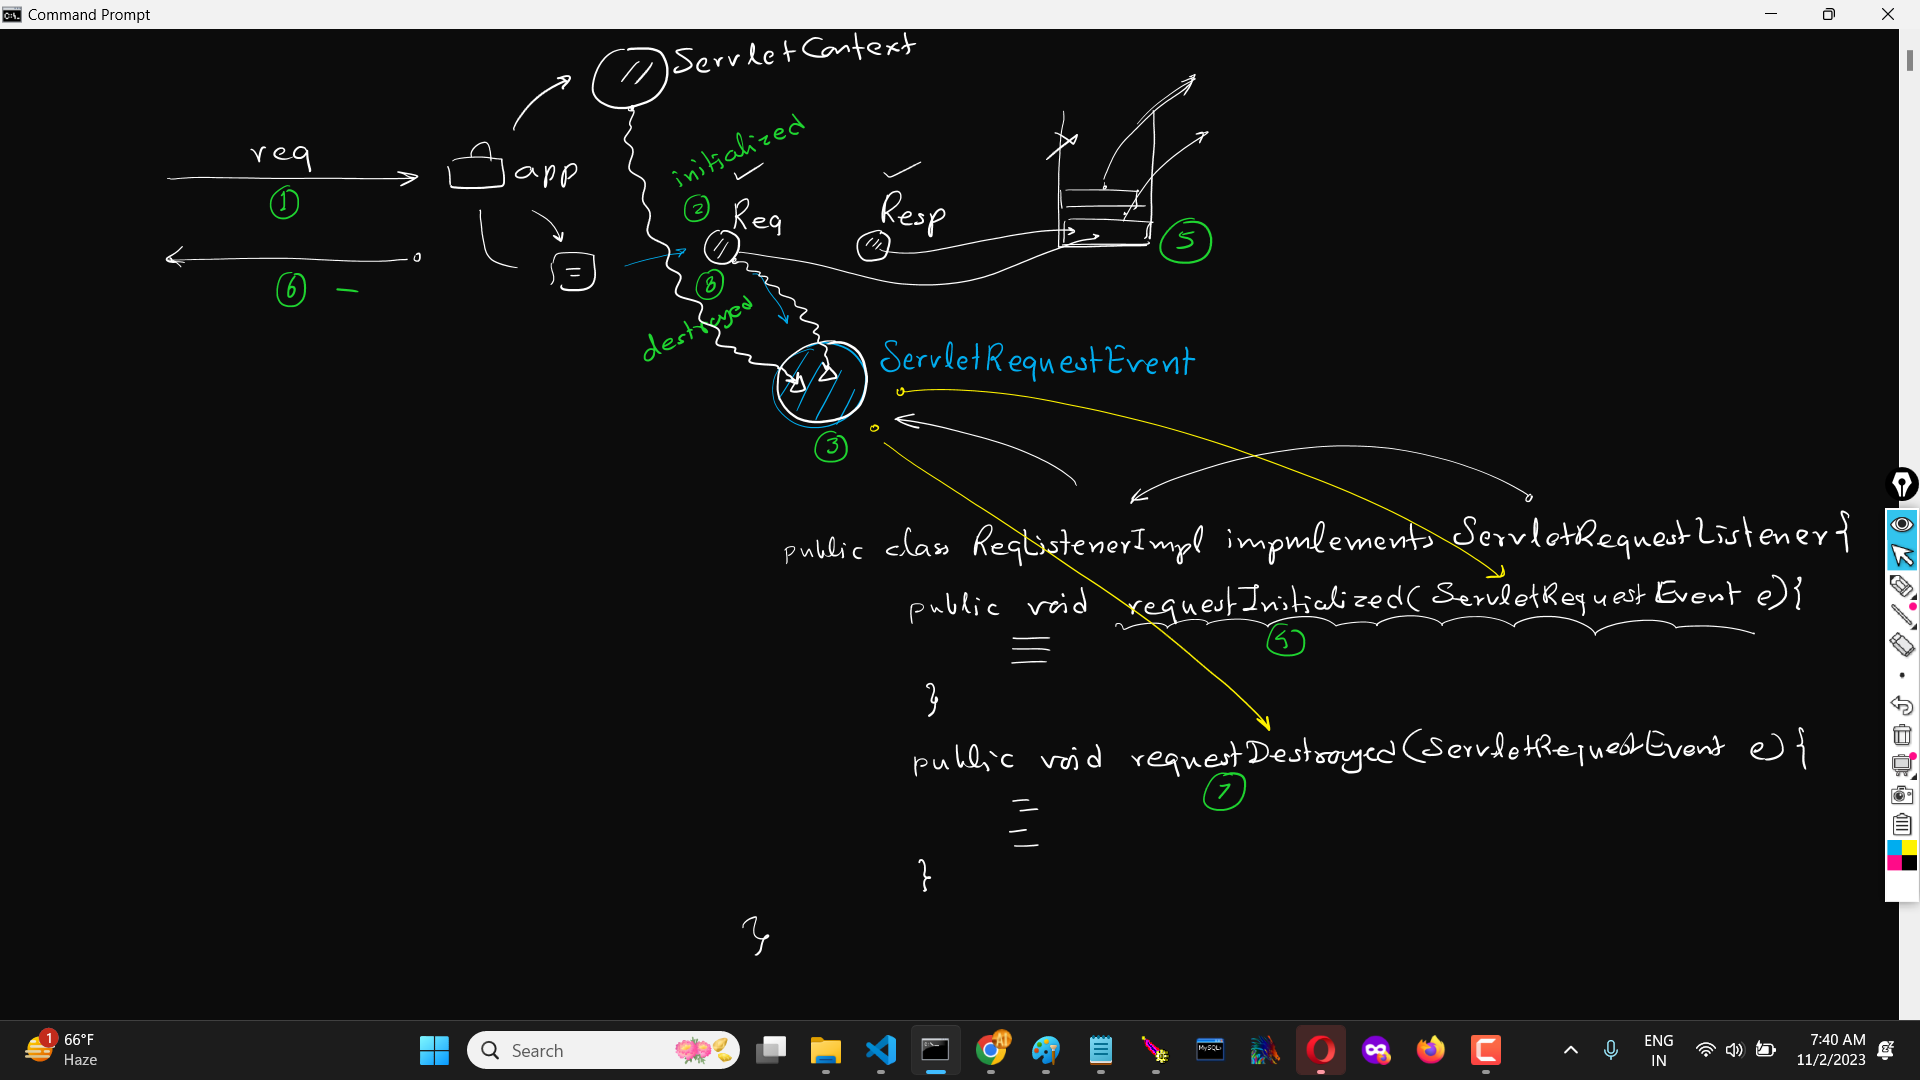 Command Prompt
ServletContext
req
1
app
initialized
2
Req
Resp
5
6 –
8
destroyed
ServletRequestEvent
3
public class ReqListenerImpl impmlements ServletRequestListener {
public void requestInitialized( ServletRequestEvent e) {
5
}
public void requestDestroyed (ServletRequestEvent e) {
7
}
}
1
66°F
Haze
Search
AI
MySQL
ENG
IN
7:40 AM
11/2/2023